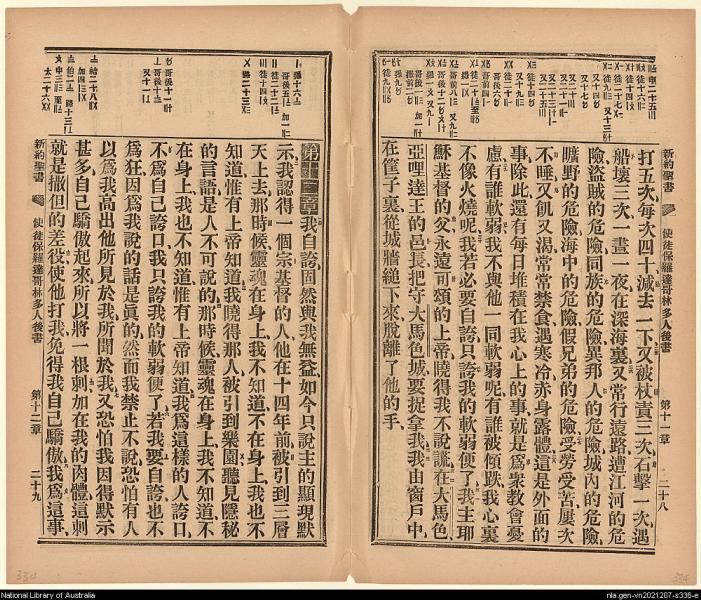 新約聖書
使徒保羅達哥林多人後書
第十一章
二十八
打五次、每次四十減去一下、又被杖責三次、石擊一次、遇
船壞三次、一晝一夜在深海裏、又常行遠路、遭江河的危
險、盜賊的危險、同族的危險、異邦人的危險、城內的危險、
曠野的危險、海中的危險、假兄弟的危險、受勞受苦、屢次
不睡、又飢又渴、常常禁食、遇寒冷、赤身露體、這是外面的
事、除此還有每日堆積在我心上的事、就是爲衆教會憂
慮、有誰軟弱、我不與他一同軟弱呢、有誰被傾跌、我心裏
不像火燒呢、我若必要自誇、只誇我的軟弱便了、我主耶
穌基督的父、永遠可頌的上帝、曉得我不說謊、在大馬色
亞哩達王的邑長、把守大馬色城、要捉拿我、我由窗戶中、
在筐子裏、從城牆縋下來、脫離了他的手、
第十二章我自誇固然與我無益、如今只說主的顯現默
示、我認得一個宗基督的人、他在十四年前被引到三層
天上去、那時候、靈魂在身上我不知道、不在身上我也不
知道、惟有上帝知道、我曉得那人被引到樂園、聽見隱秘
的言語、是人不可說的、那時候、靈魂在身上我不知道、不
在身上我也不知道、惟有上帝知道、我爲這樣的人誇口、
不爲自己誇口、我只誇我的軟弱便了、若我要自誇、也不
爲狂、因爲我說的話是眞的、然而我禁止不說、恐怕有人
以爲我高出他所見於我、所聞於我、又恐怕我因得默示
甚多、自己驕傲起來、所以將一根刺加在我的肉體、這刺
就是撒但的差役、使他打我、免得我自己驕傲、我爲這事、
新約聖書
使徒保羅達哥林多人後書
第十二章
二十九
National Library of Australia
nla.gen-vn2021207-s336-e